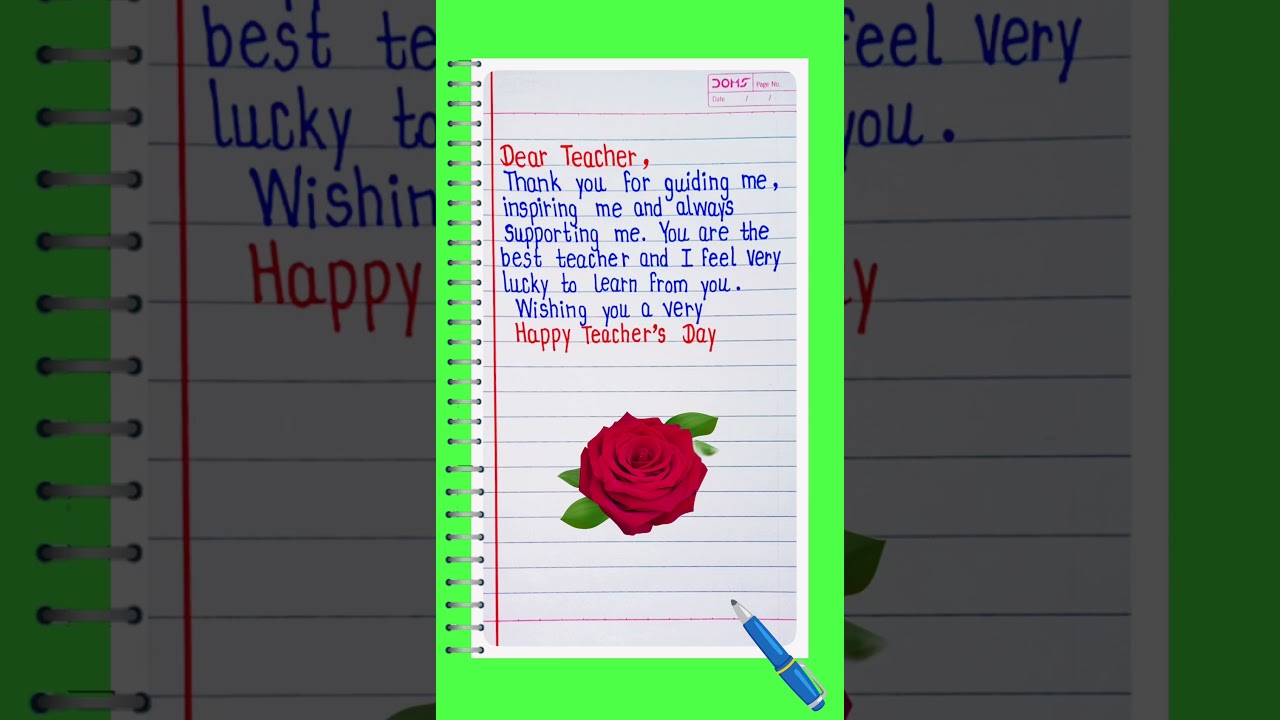 best te
feel very
lucky to
you.
Wishin
Happy
ay
DOMS
Page No.
Date / /
Dear Teacher,
Thank you for guiding me,
inspiring me and always
supporting me. You are the
best teacher and I feel very
lucky to learn from you.
Wishing you a very
Happy Teacher's Day